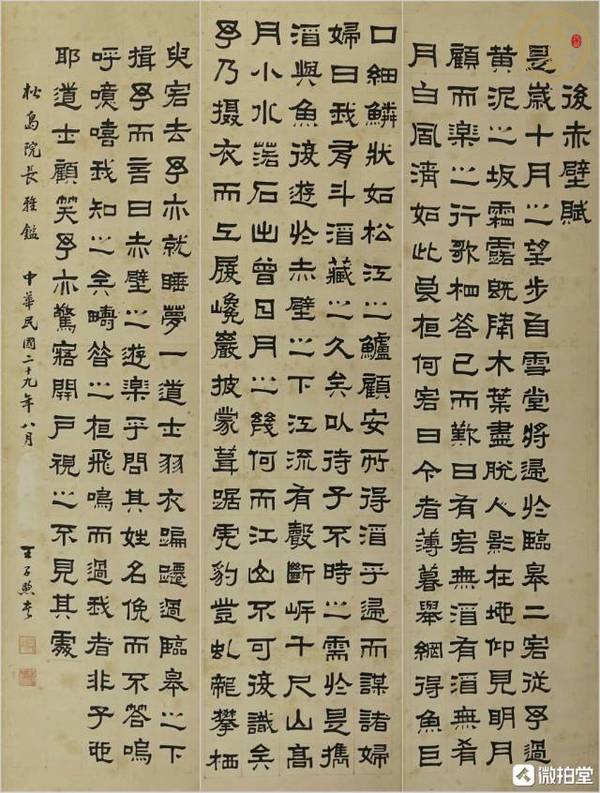 後赤壁賦
是歲十月之望步自雪堂將歸於臨皋二客從予過
黃泥之坂霜露既降木葉盡脫人影在地仰見明月
顧而樂之行歌相答已而歎曰有客無酒有酒無肴
月白風清如此良夜何客曰今者薄暮舉網得魚巨
口細鱗狀如松江之鱸顧安所得酒乎歸而謀諸婦
婦曰我有斗酒藏之久矣以待子不時之需於是攜
酒與魚復遊於赤壁之下江流有聲斷岸千尺山高
月小水落石出曾日月之幾何而江山不可復識矣
予乃攝衣而上履巉巖披蒙茸踞虎豹登虬龍攀栖
臾客去予亦就睡夢一道士羽衣蹁躚過臨皋之下
揖予而言曰赤壁之遊樂乎問其姓名俛而不答嗚
呼噫嘻我知之矣疇昔之夜飛鳴而過我者非子也
耶道士顧笑予亦驚寤開戶視之不見其處
松島院長雅鑑 中華民國二十九年八月
微拍堂